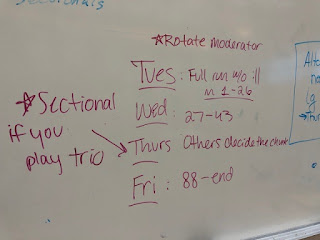 *Rotate moderator
Tues: Full run w/o ill
m. 1-26
Wed: 27-43
*Sectional
if you
play trio
Thurs Others decide the
Fri: 88-end
Alto